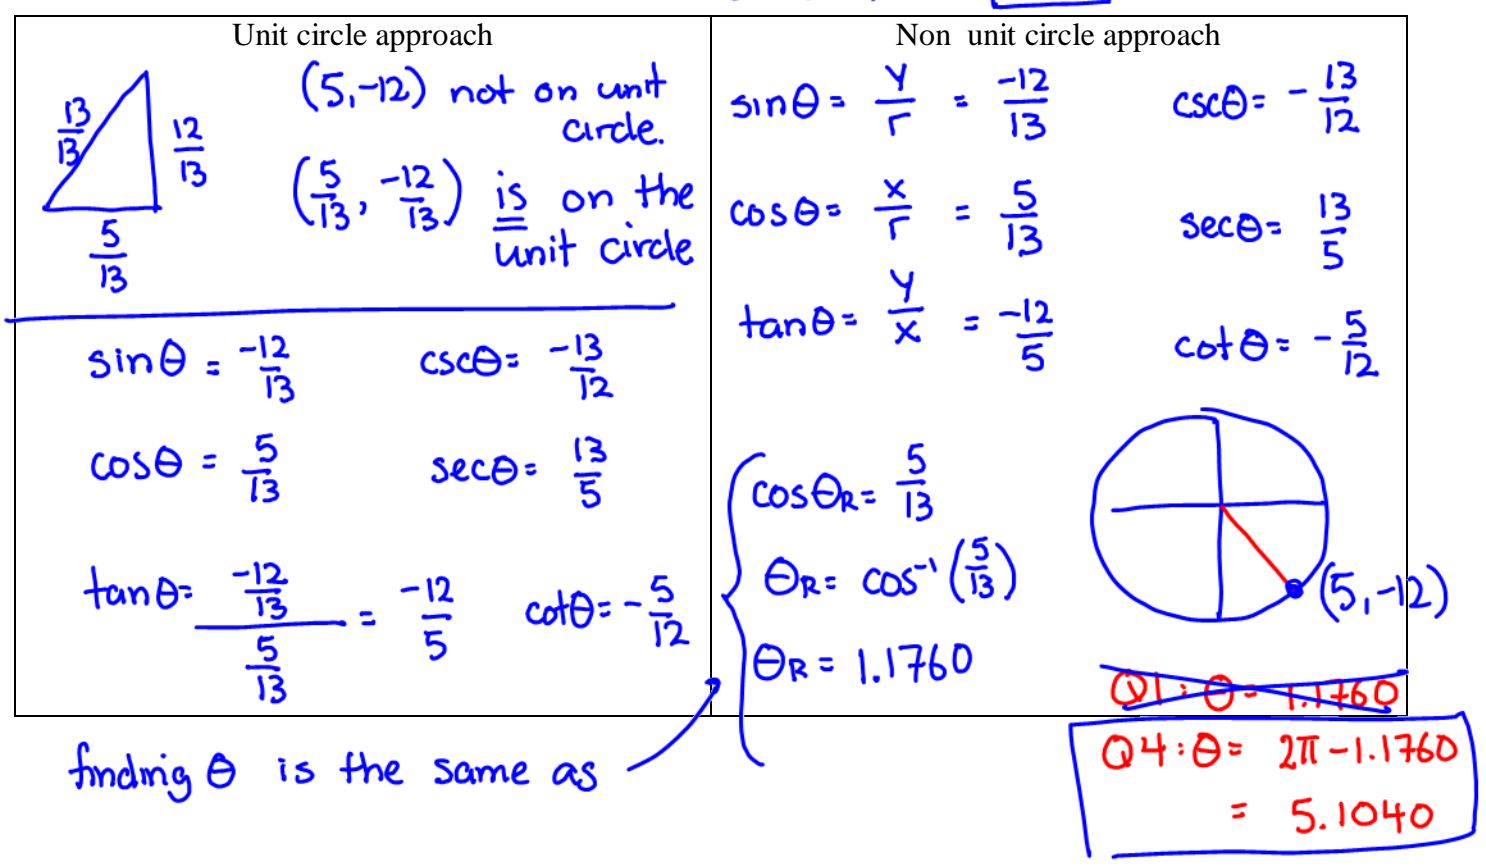 Unit circle approach
13/13
12/13
5/13
(5,-12) not on unit
circle.
(5/13, -12/13) is on the
unit circle
sinθ = -12/13 cscθ= -13/12
cosθ = 5/13 secθ= 13/5
tanθ= (-12/13)/(5/13) = -12/5 cotθ= -5/12
Non unit circle approach
sinθ= y/r = -12/13 cscθ= -13/12
cosθ= x/r = 5/13 secθ= 13/5
tanθ= y/x = -12/5 cotθ= -5/12
cosθR= 5/13
θR= cos⁻¹(5/13)
θR= 1.1760
(5,-12)
Q1: θ= 1.1760
Q4: θ= 2π-1.1760
= 5.1040
finding θ is the same as